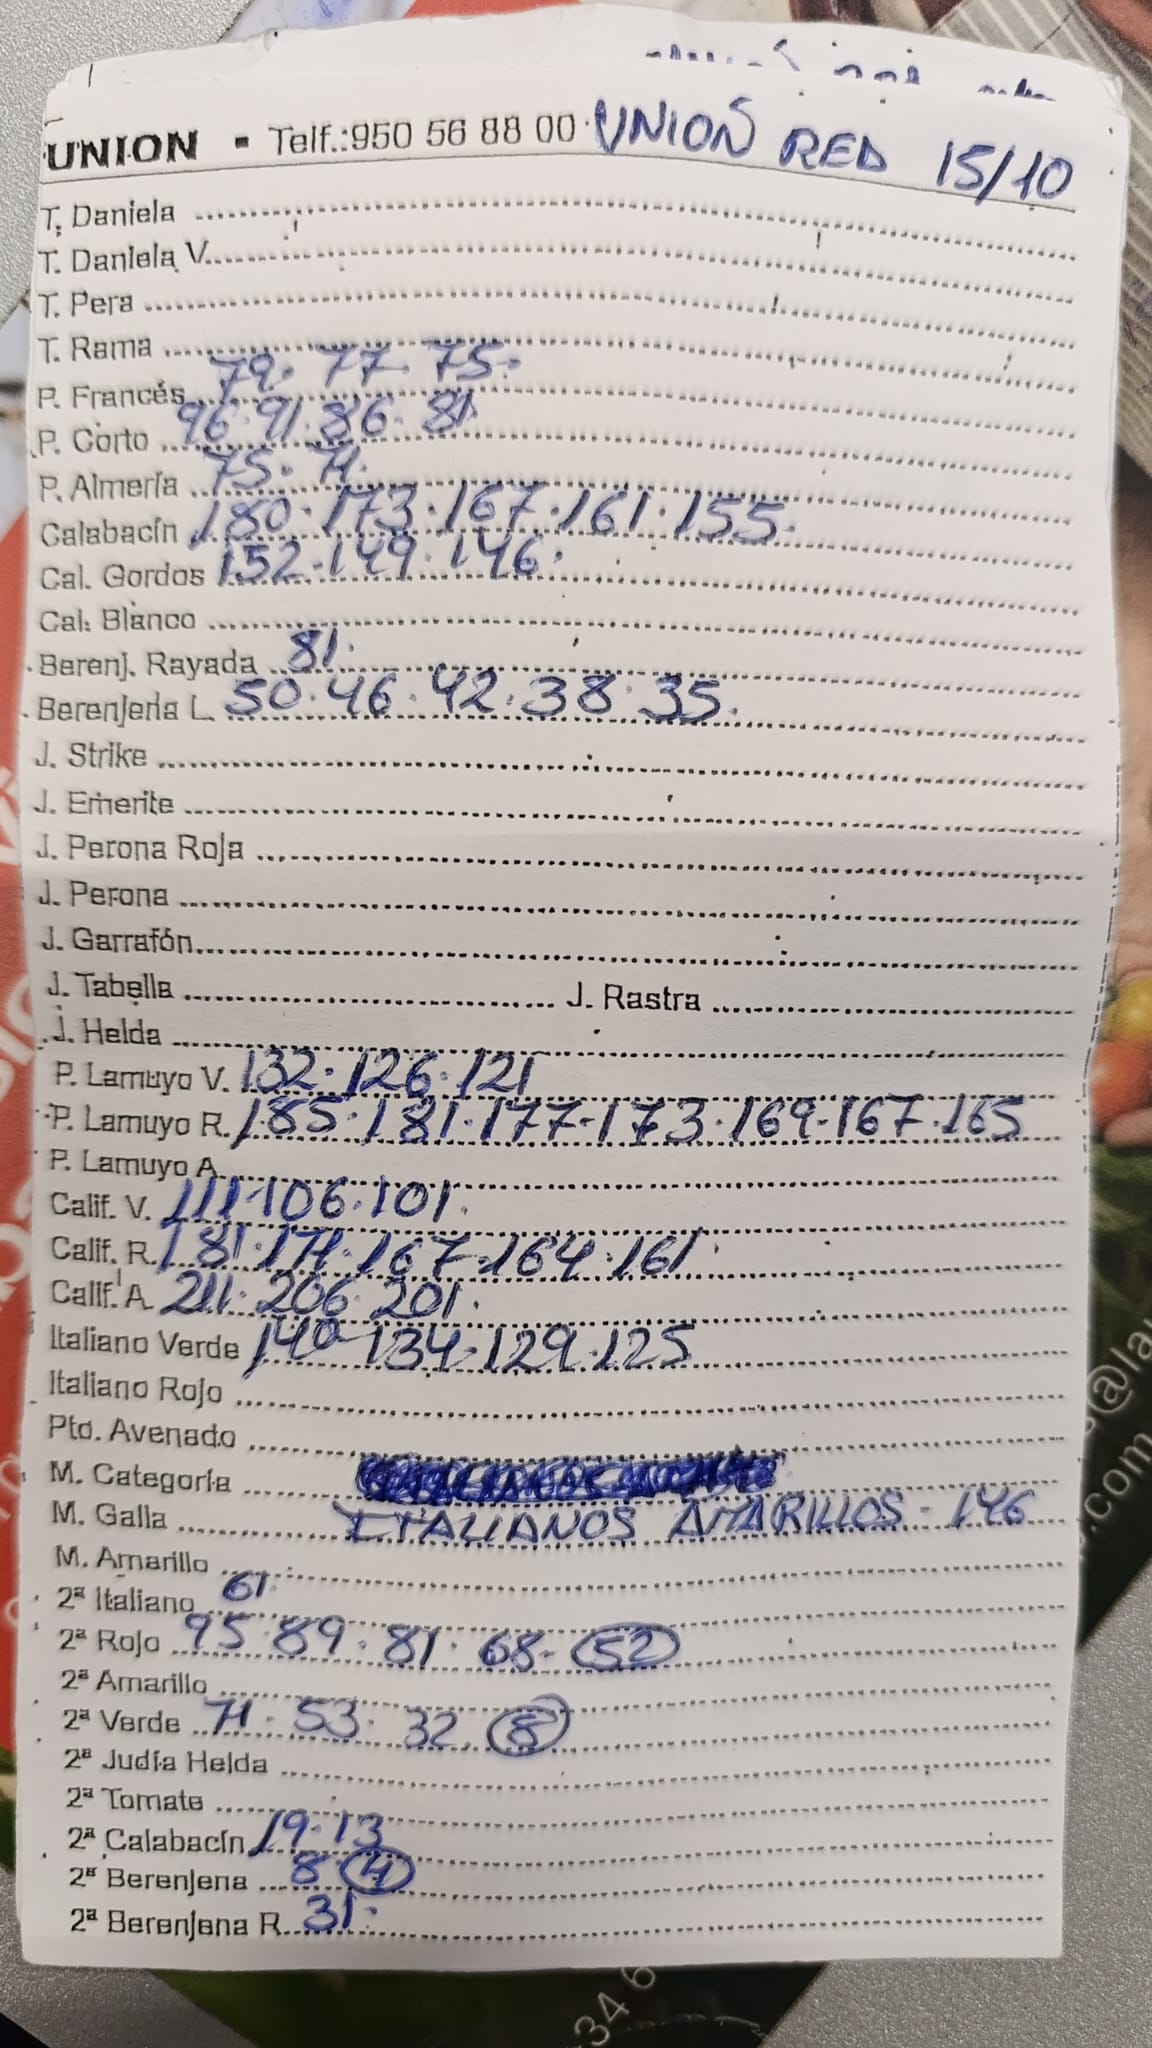 UNION - Telf.:950 56 88 00 UNION RED 15/10
T. Daniela
T. Daniela V.
T. Pera
T. Rama
P. Francés 79. 77. 75.
P. Corto 96. 91. 86. 81
P. Almería 75. 71.
Calabacín 180. 173. 167. 161. 155.
Cal. Gordos 152. 149. 146.
Cal. Blanco
Berenj. Rayada 81.
Berenjena L. 50. 46. 42. 38. 35.
J. Strike
J. Emerite
J. Perona Roja
J. Perona
J. Garrafón
J. Tabella J. Rastra
J. Helda
P. Lamuyo V. 132. 126. 121
P. Lamuyo R. 185. 181. 177. 173. 169. 167. 165
P. Lamuyo A.
Calif. V. 111. 106. 101.
Calif. R. 181. 171. 167. 164. 161.
Calif. A. 211. 206. 201.
Italiano Verde 140 134. 129. 125
Italiano Rojo
Pto. Avenado
M. Categoría
M. Galla ITALIANOS AMARILLOS - 146
M. Amarillo
2ª Italiano 61.
2ª Rojo 95. 89. 81. 68. 52
2ª Amarillo
2ª Verde 71. 53. 32. 8
2ª Judía Helda
2ª Tomate
2ª Calabacín 19. 13
2ª Berenjena 8 4
2ª Berenjena R. 31.